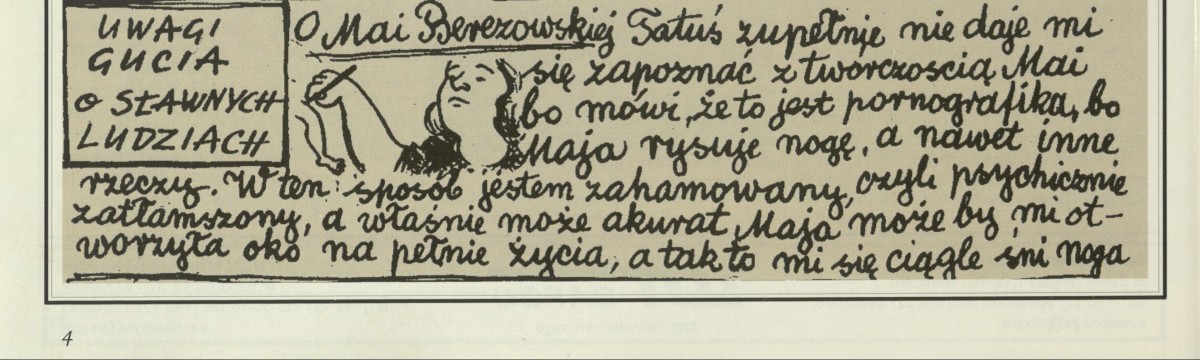 UWAGI
GUCIA
O SŁAWNYCH
LUDZIACH
O Mai Berezowskiej Tatuś zupełnie nie daje mi
się zapoznać z twórczością Mai
bo mówi, że to jest pornografika, bo
Maja rysuje nogę, a nawet inne
rzeczy. W ten sposób jestem zahamowany, czyli psychicznie
zatłamszony, a właśnie może akurat Maja może by mi ot-
worzyła oko na pełnie życia, a tak to mi się ciągle śni noga
4